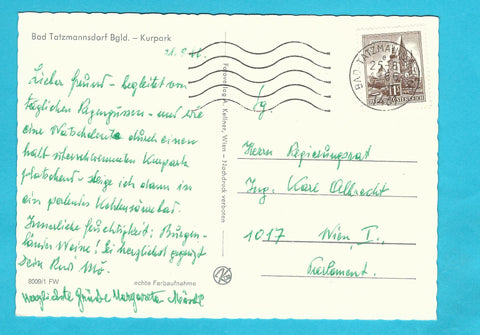 Bad Tatzmannsdorf Bgld. – Kurpark
Lieber Freund – begleitet von
täglichen Regengüssen – und wie
eine Watschelente durch einen
halt überschwemmten Kurpark
platschend – steige ich dann in
ein perlendes Kohlensäurebad.
Innerliche Feuchtigkeit: Burgen-
länder Weine! Sei herzlichst gegrüßt
Dein
8009/1 FW
echte Farbaufnahme
Herzlichste Grüße Margarete
Fotoverlag A. Kellner, Wien – Nachdruck verboten
BAD TATZMANNSDORF
ÖSTERREICH
Herrn Regierungsrat
Ing. Karl Albrecht
1017 Wien I.
Parlament.